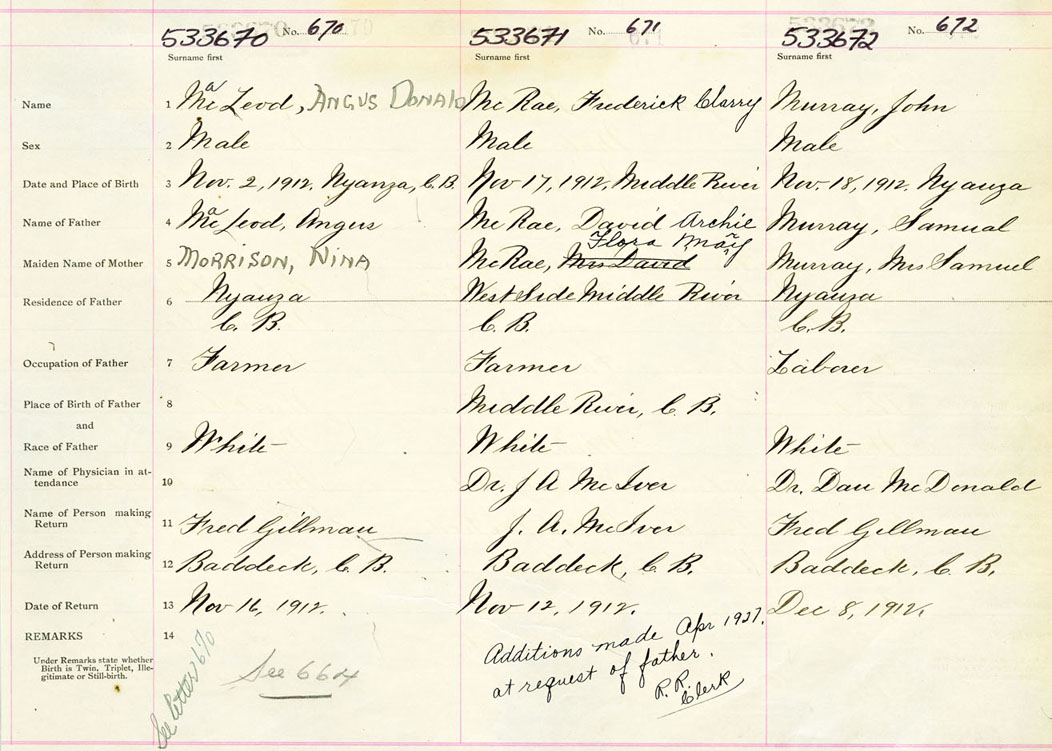 533670 No. 670 533671 No. 671 533672 No. 672
Surname first Surname first Surname first
Name 1 McLeod, ANGUS DONALD Mc Rae, Frederick Clarry Murray, John
Sex 2 Male Male Male
Date and Place of Birth 3 Nov. 2, 1912. Nyanza, C.B. Nov 17, 1912. Middle River Nov. 18, 1912. Nyanza
Name of Father 4 McLeod, Angus Mc Rae, David Archie Murray, Samual
Flora Mary
Maiden Name of Mother 5 MORRISON, NINA McRae, Mrs David Murray, Mrs Samuel
Residence of Father 6 Nyanza West Side Middle River Nyanza
C. B. C. B. C. B.
Occupation of Father 7 Farmer Farmer Laborer
Place of Birth of Father 8 Middle River, C. B.
and
Race of Father 9 White White White
Name of Physician in at-
tendance 10 Dr. J A McIver Dr. Dan McDonald
Name of Person making
Return 11 Fred Gillman J. A. McIver Fred Gillman
Address of Person making
Return 12 Baddeck, C. B. Baddeck, C. B. Baddeck, C. B.
Date of Return 13 Nov 16, 1912. Nov 12, 1912. Dec 8, 1912.
REMARKS 14
Under Remarks state whether
Birth is Twin, Triplet, Ille-
gitimate or Still-birth.
See letter 670
See 664
Additions made Apr 1927.
at request of father.
R. R.
Clerk